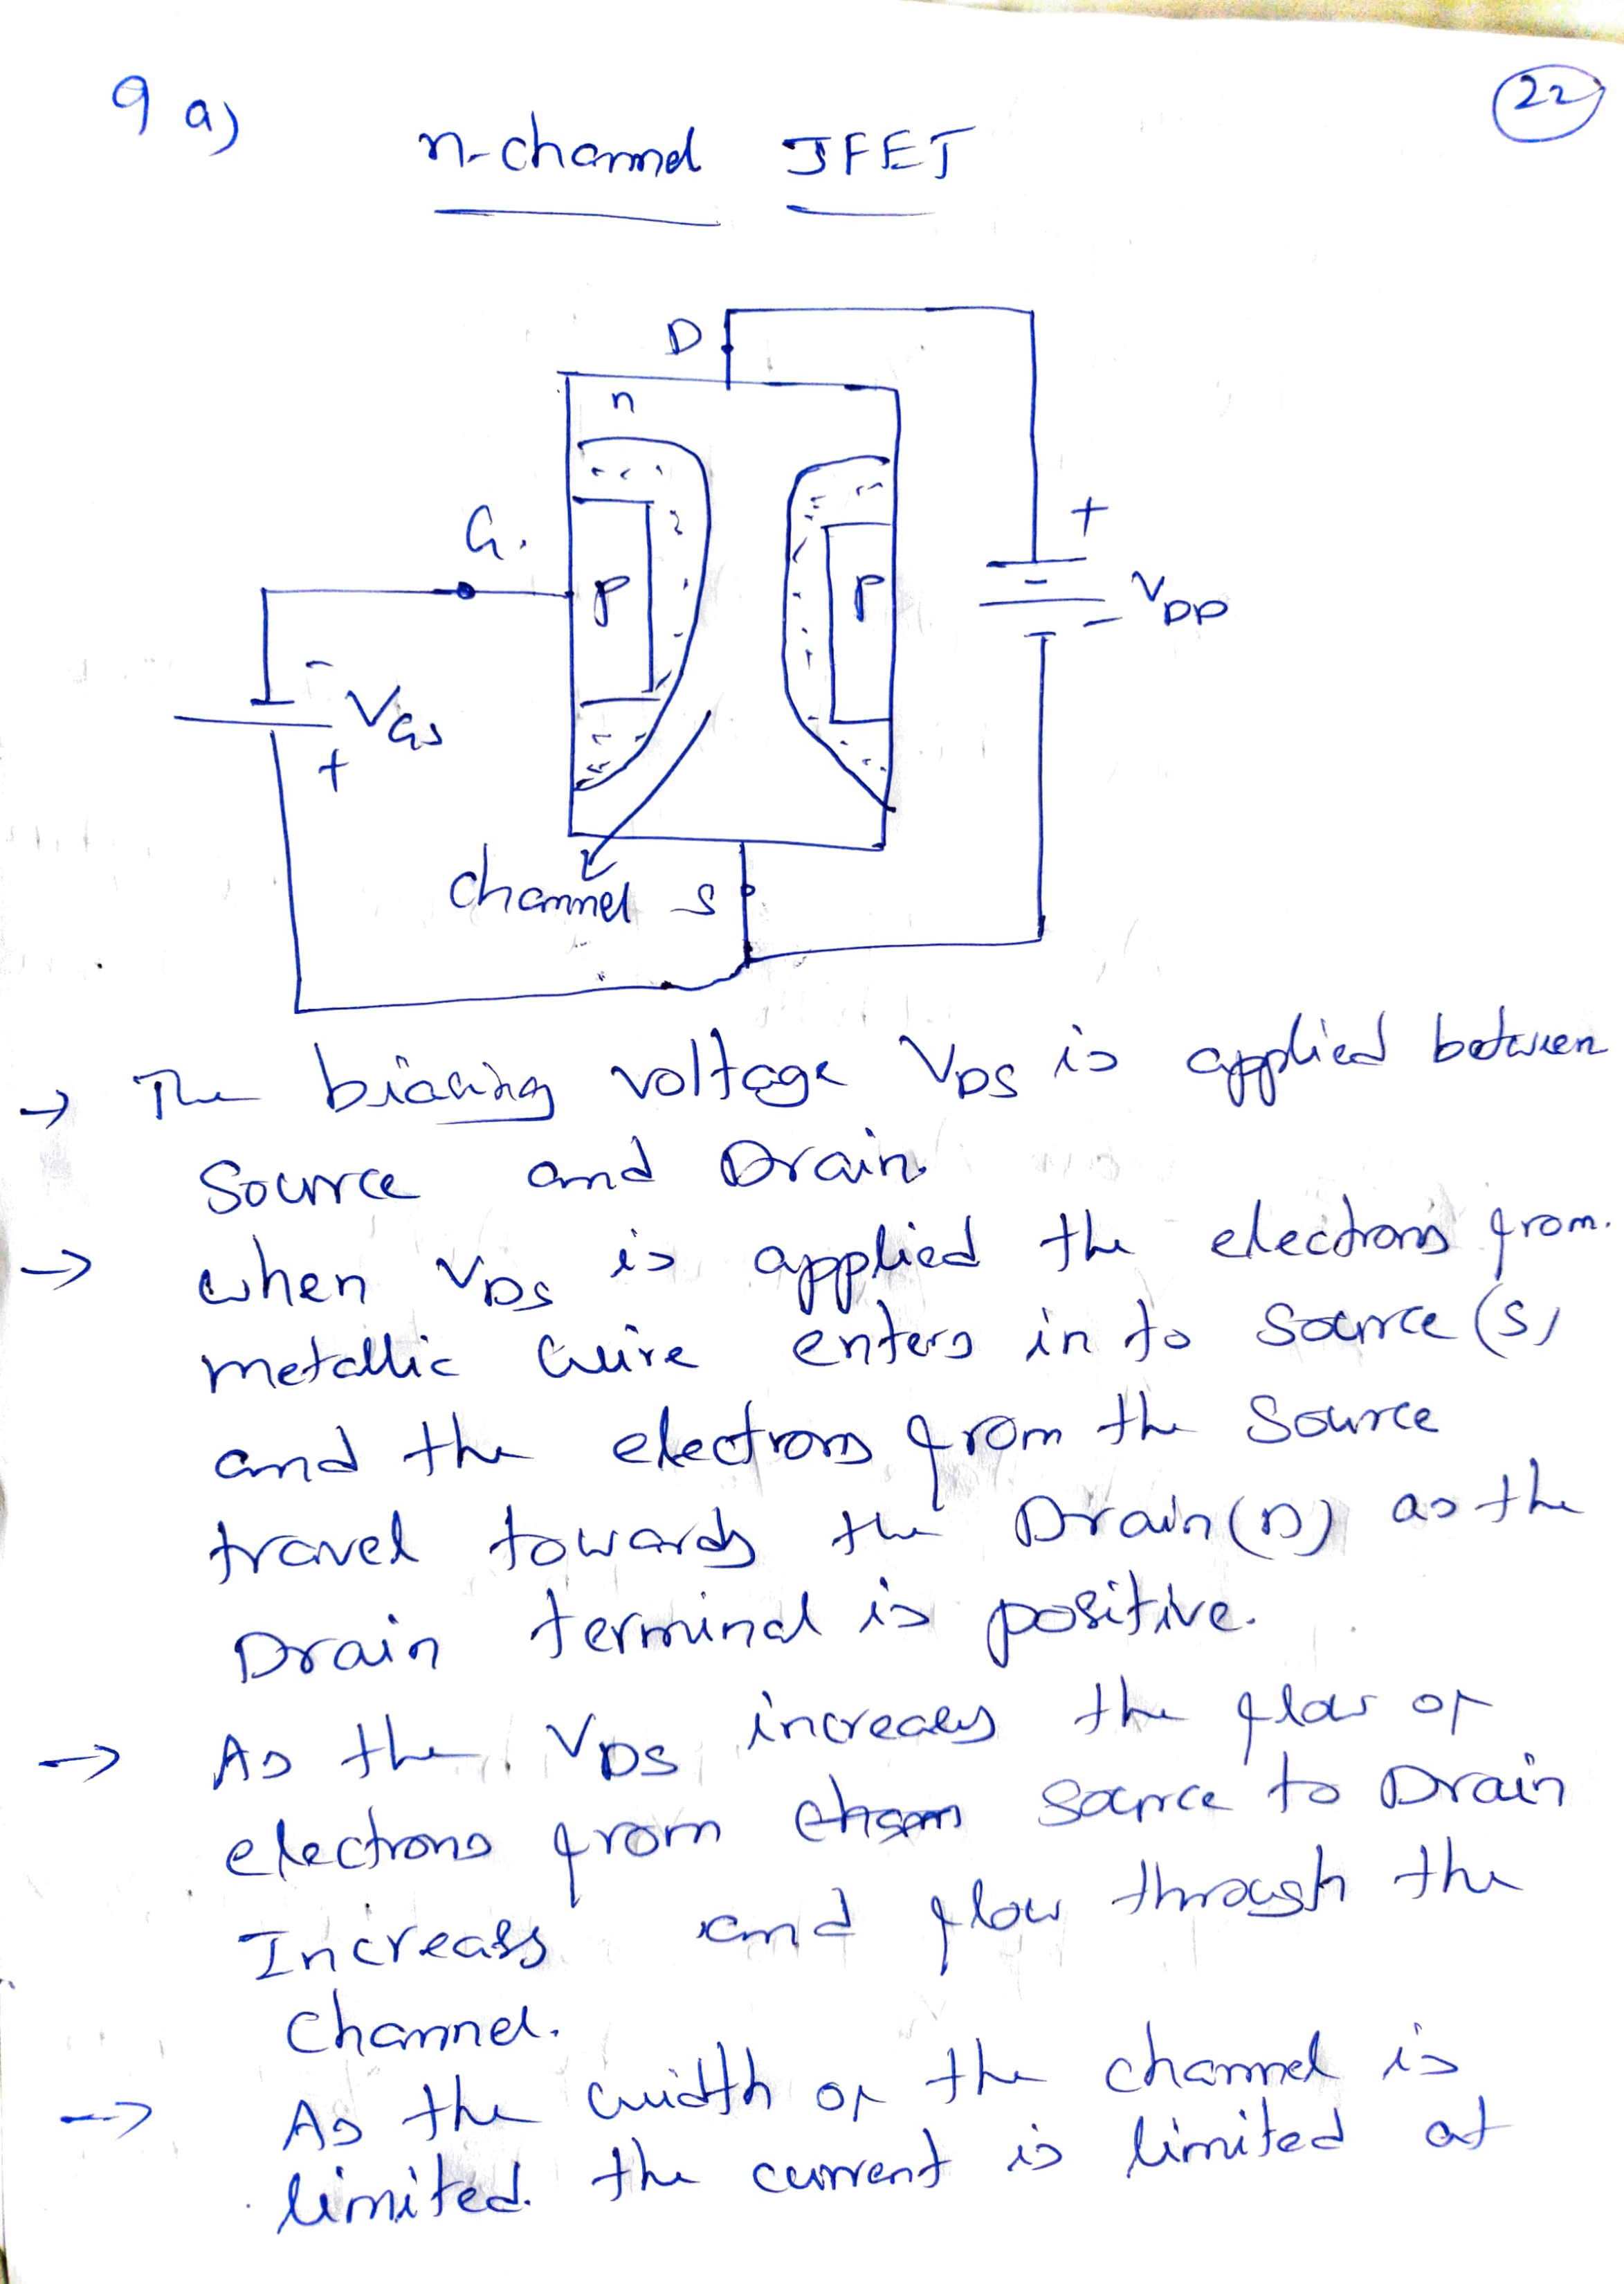 9 a)
22
n-channel JFET
D
n
G.
+
P
P
-
VDD
-
VGS
+
channel
S
→ The biasing voltage VDS is applied between
Source and Drain.
→ when VDS is applied the electrons from.
metallic wire enters in to Source (S)
and the electrons from the Source
travel towards the Drain (D) as the
Drain terminal is positive.
→ As the VDS increases the flow of
electrons from cham source to Drain
Increases and flow through the
channel.
→ As the width of the channel is
limited. the current is limited at